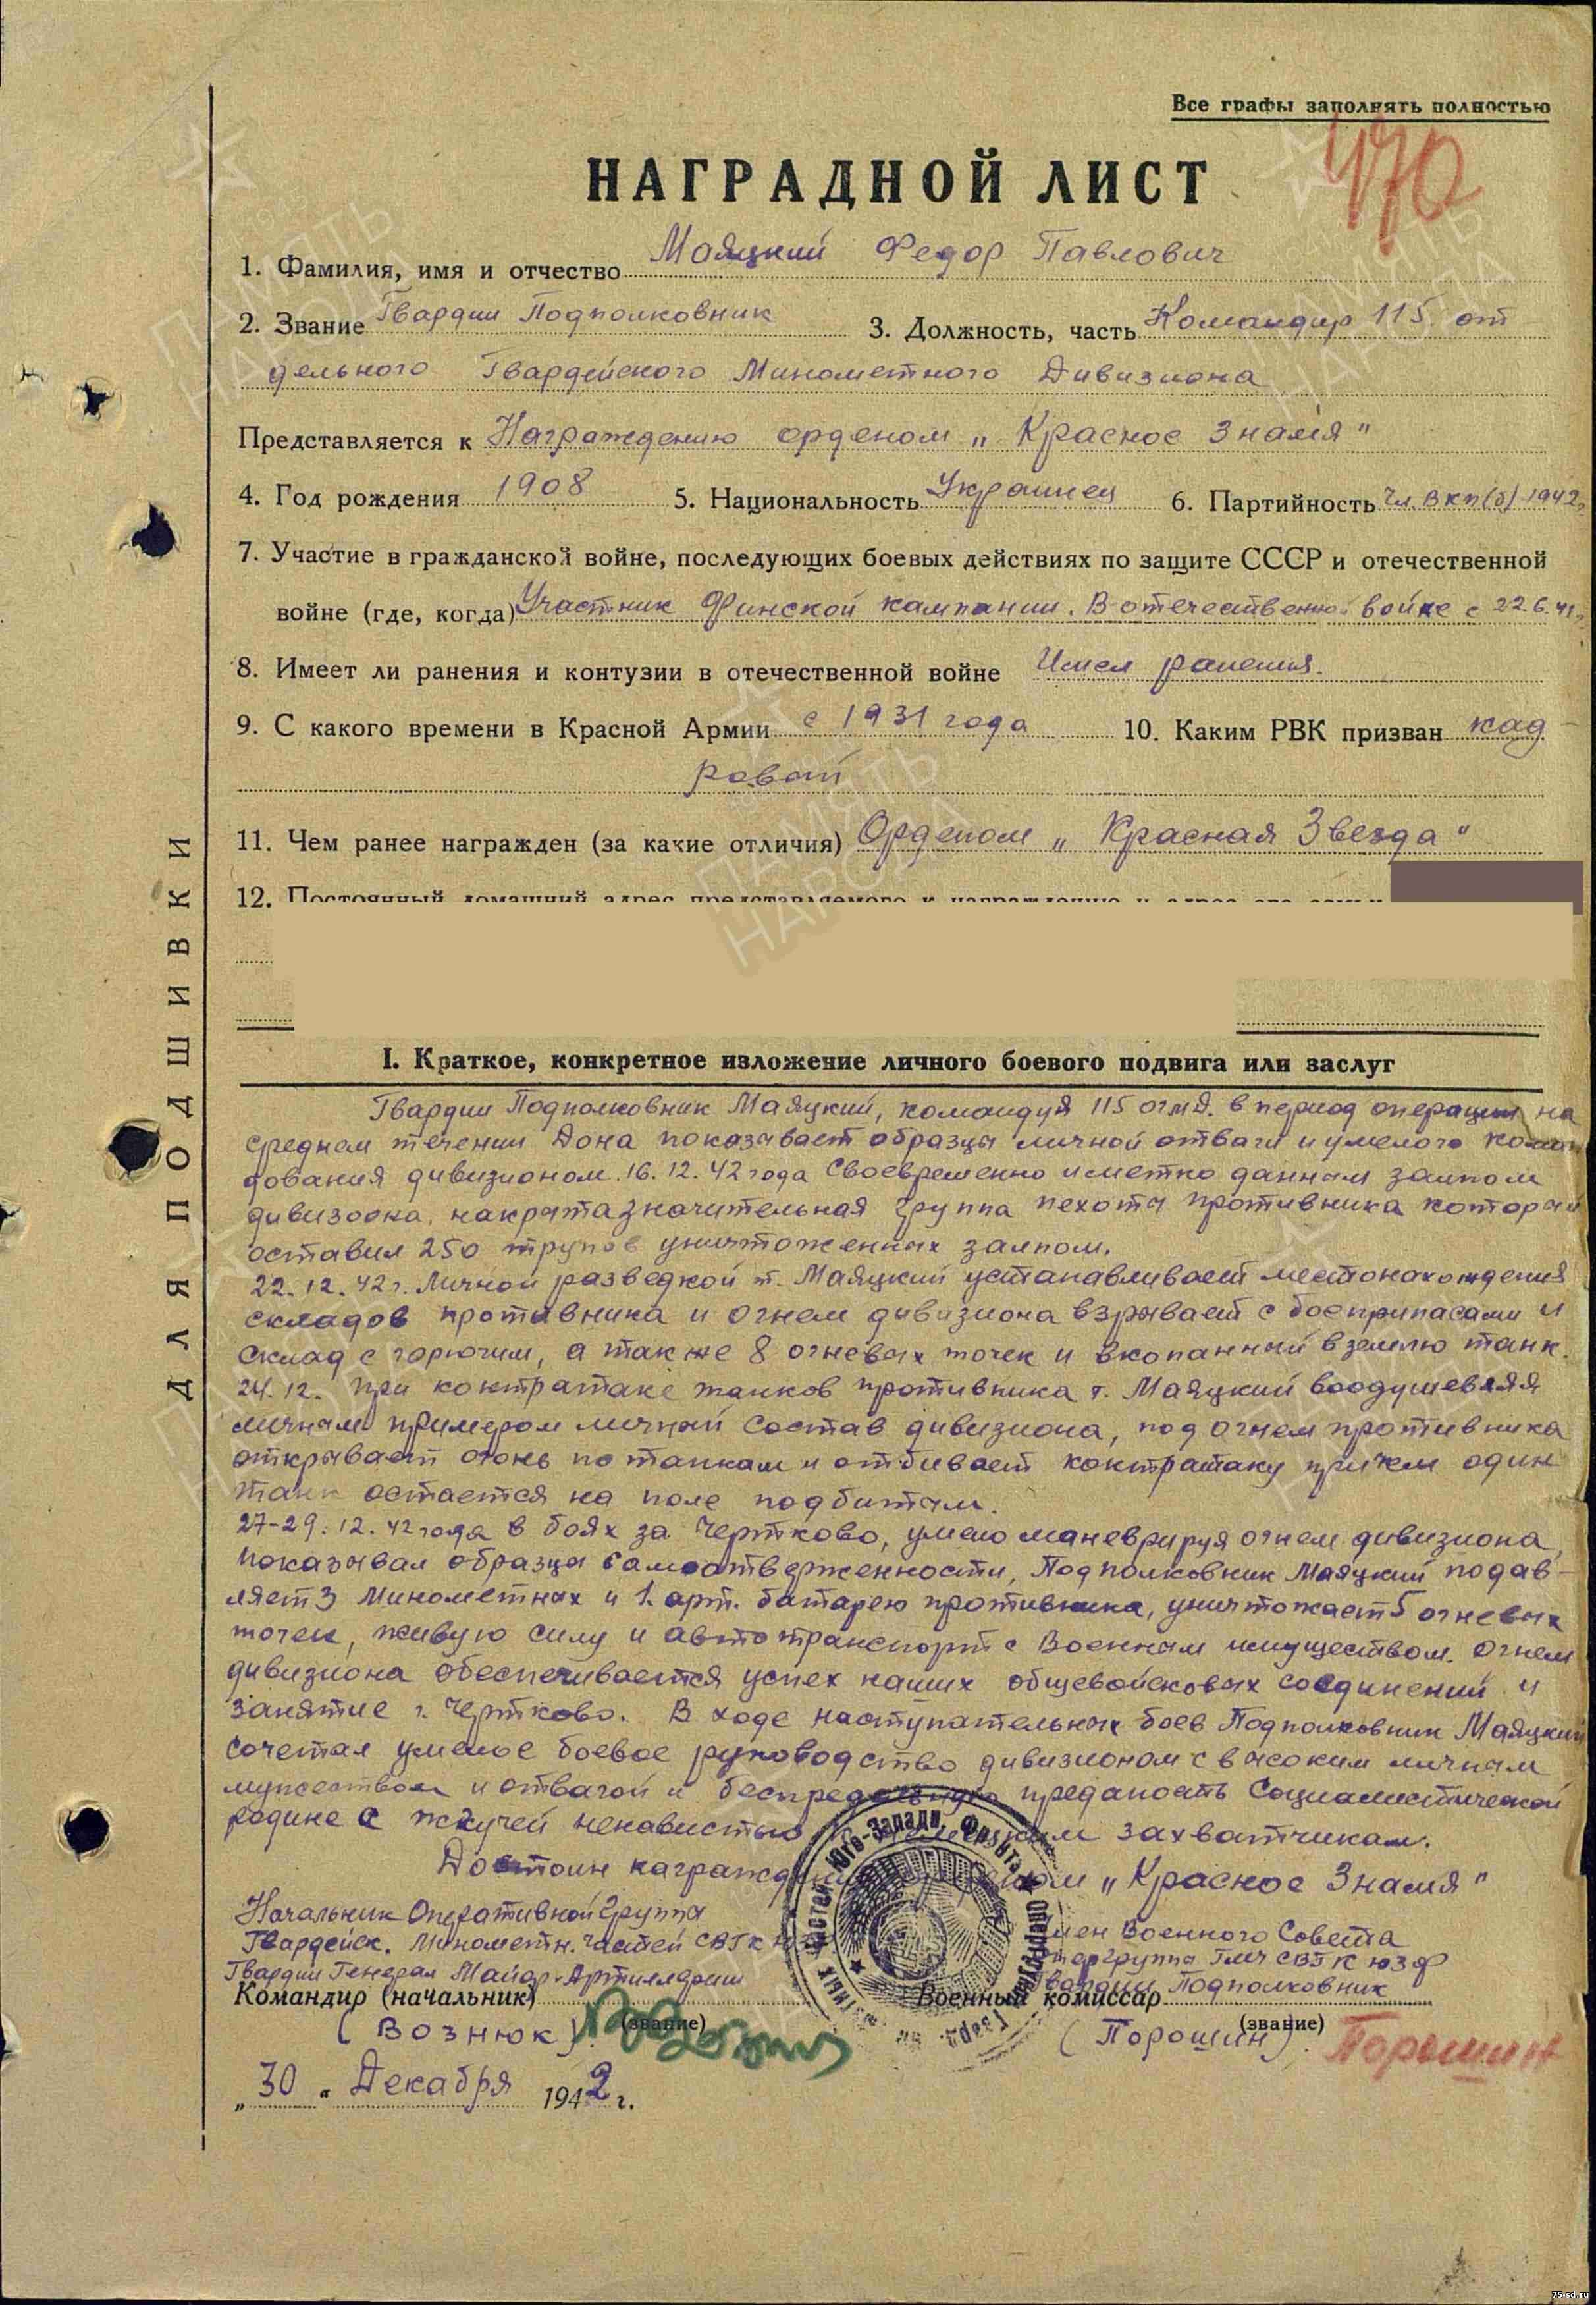 Все графы заполнять полностью
470
НАГРАДНОЙ ЛИСТ
1. Фамилия, имя и отчество Маяцкий Федор Павлович
2. Звание Гвардии Подполковник 3. Должность, часть Командир 115 от
дельного Гвардейского Минометного Дивизиона
Представляется к Награждению орденом „Красное Знамя"
4. Год рождения 1908 5. Национальность Украинец 6. Партийность Чл. ВКП(б) 1942г
7. Участие в гражданской войне, последующих боевых действиях по защите СССР и отечественной
войне (где, когда) Участник Финской кампании. В отечественной войне с 22.6.41г
8. Имеет ли ранения и контузии в отечественной войне Имел ранения.
9. С какого времени в Красной Армии с 1931 года 10. Каким РВК призван кад
ровый
11. Чем ранее награжден (за какие отличия) Орденом „Красная Звезда"
12. Постоянный домашний адрес представляемого к награждению и адрес его семьи
ДЛЯ ПОДШИВКИ
I. Краткое, конкретное изложение личного боевого подвига или заслуг
Гвардии Подполковник Маяцкий, командуя 115 огмд. в период операции на
среднем течении Дона показывает образцы личной отваги и умелого коман
дования дивизионом. 16.12.42 года Своевременно и метко данным залпом
дивизиона, накрыта значительная группа пехоты противника который
оставил 250 трупов уничтоженных залпом.
22.12.42г. Личной разведкой т. Маяцкий устанавливает местонахождения
складов противника и огнем дивизиона взрывает с боеприпасами и
склад с горючим, а также 8 огневых точек и вкопанный в землю танк.
24.12. При контратаке танков противника т. Маяцкий воодушевляя
личным примером личный состав дивизиона, под огнем противника
открывает огонь по танкам и отбивает контратаку причем один
танк остается на поле подбитым.
27-29.12.42 года в боях за Чертково, умело маневрируя огнем дивизиона,
показывал образцы самоотверженности, Подполковник Маяцкий подав-
ляет 3 минометных и 1. арт. батарею противника, уничтожает 5 огневых
точек, живую силу и автотранспорт с военным имуществом. Огнем
дивизиона обеспечивается успех наших общевойсковых соединений и
занятие г. Чертково. В ходе наступательных боев Подполковник Маяцкий
сочетал умелое боевое руководство дивизионом с высоким личным
мужеством и отвагой и беспредельную преданость Социалистической
родине с жгучей ненавистью к немецким захватчикам.
Достоин награждения орденом „Красное Знамя"
Начальник Оперативной Группы
Гвардейск. Минометн. частей СВГК ЮЗФ
Гвардии Генерал Майор Артиллерии
Командир (начальник)
(звание)
(Вознюк)
Член Военного Совета
опергруппы ГМЧ СВГК ЮЗФ
Гвардии Подполковник
Военный комиссар
(звание)
(Порошин). Порошин
Юго-Западн. Фронта
„30" Декабря 1942 г.
ПАМЯТЬ НАРОДА
75-sd.ru